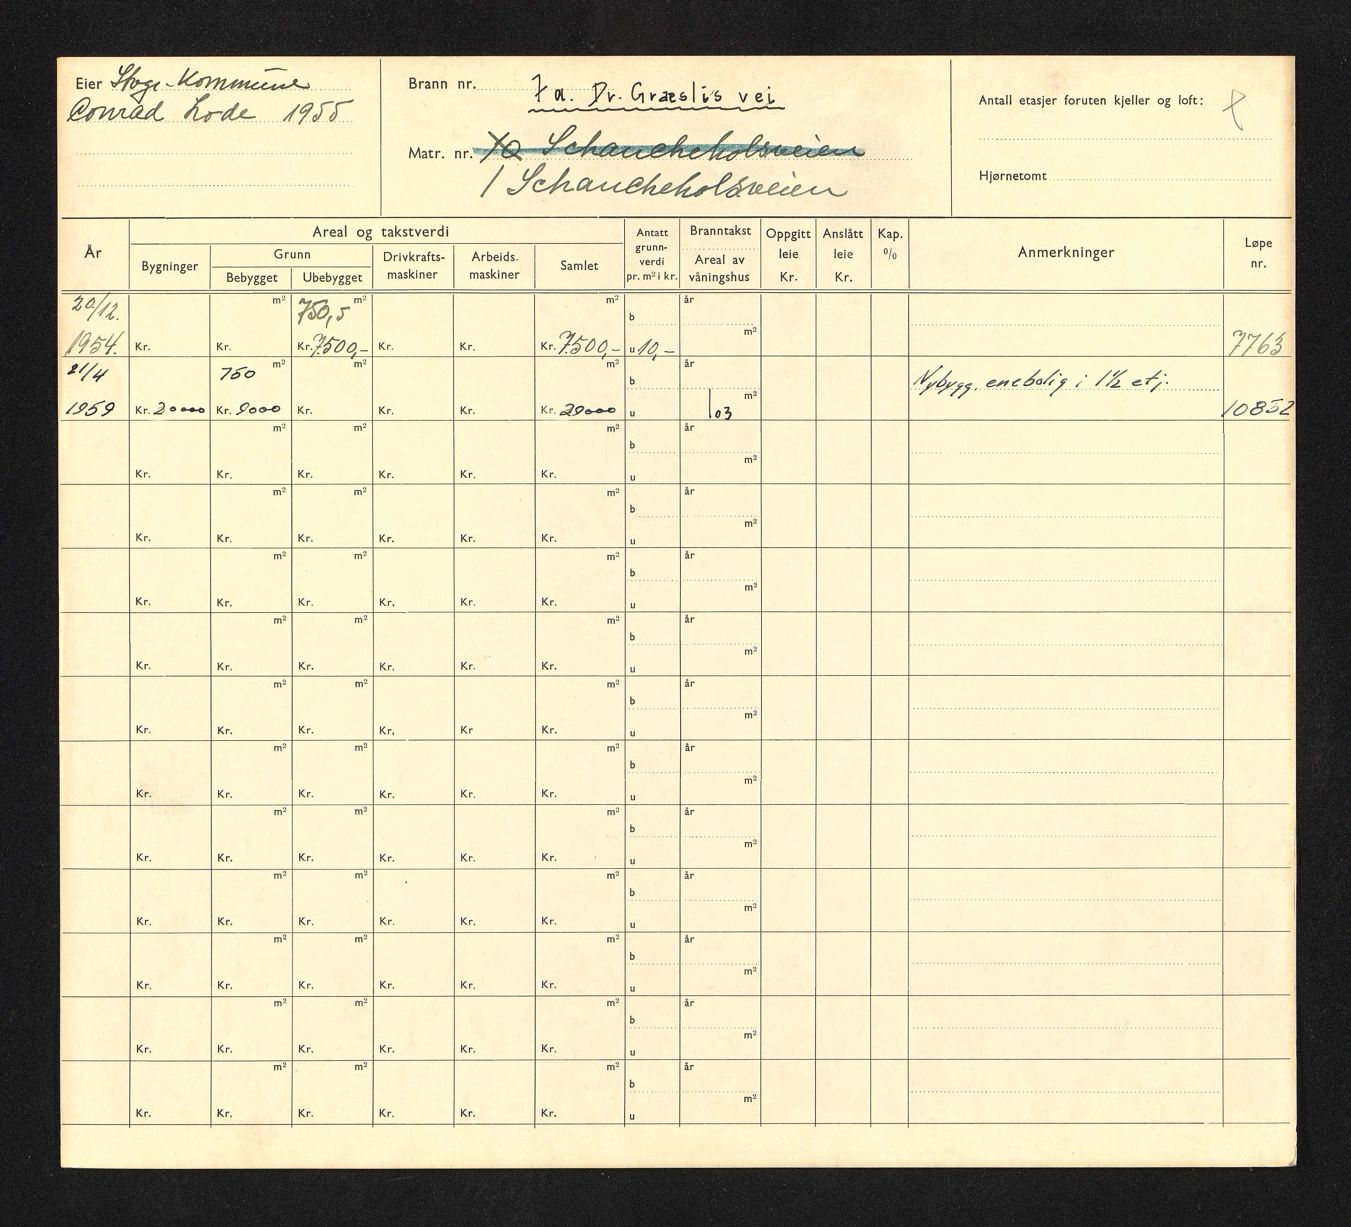 Eier Stvgr. Kommune
Conrad Lode 1955
Brann nr. 7a. Dr. Græslis vei
Matr. nr. 7a Schancheholsveien
1 Schancheholsveien
Antall etasjer foruten kjeller og loft:
Hjørnetomt
År
Areal og takstverdi
Bygninger
Grunn
Bebygget Ubebygget
Drivkrafts-
maskiner
Arbeids.
maskiner
Samlet
Antatt
grunn-
verdi
pr. m² i kr.
Branntakst
Areal av
våningshus
Oppgitt
leie
Kr.
Anslått
leie
Kr.
Kap.
%
Anmerkninger
Løpe
nr.
20/12. m² 750,5 m² m² b år m²
1954. Kr. Kr. Kr. 7500,- Kr. Kr. Kr. 7500,- u 10,- 7763
21/4 750 m² m² m² b år m² Nybygg. enebolig i 1 1/2 etj.
1959 Kr. 20000 Kr. 9000 Kr. Kr. Kr. Kr. 29000 u 103 10852
m² m² m² b år m²
Kr. Kr. Kr. Kr. Kr. Kr. u
m² m² m² b år m²
Kr. Kr. Kr. Kr. Kr. Kr. u
m² m² m² b år m²
Kr. Kr. Kr. Kr. Kr. Kr. u
m² m² m² b år m²
Kr. Kr. Kr. Kr. Kr. Kr. u
m² m² m² b år m²
Kr. Kr. Kr. Kr, Kr Kr. u
m² m² m² b år m²
Kr. Kr. Kr. Kr. Kr. Kr. u
m² m² m² b år m²
Kr. Kr. Kr. Kr. Kr. Kr. u
m² m² m² b år m²
Kr. Kr. Kr. Kr. Kr. Kr. u
m² m² m² b år m²
Kr. Kr. Kr. Kr. Kr. Kr. u
m² m² m² b år m²
Kr. Kr. Kr. Kr. Kr. Kr. u
m² m² m² b år m²
Kr. Kr. Kr. Kr. Kr. Kr. u